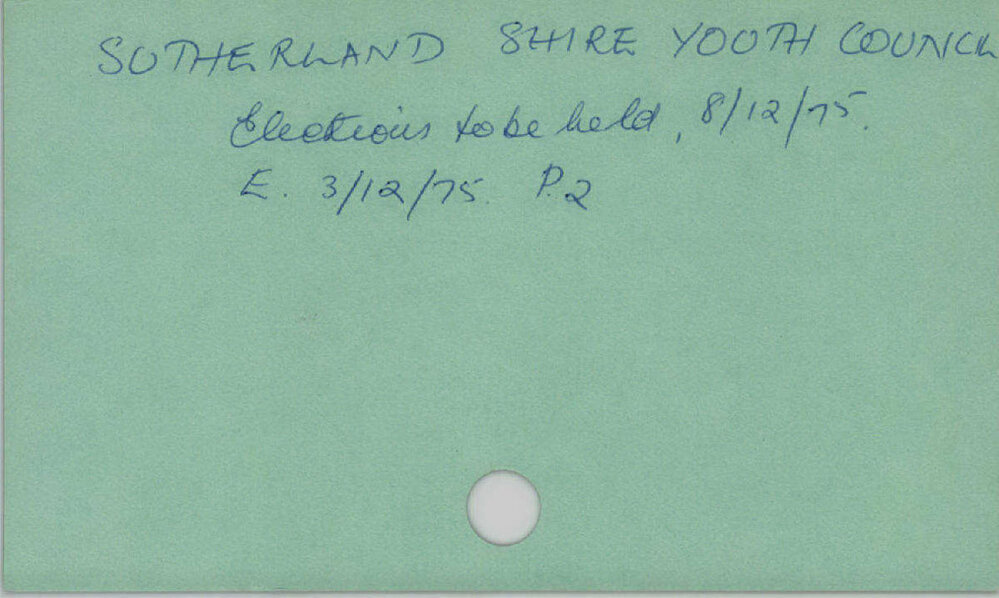 SUTHERLAND SHIRE YOUTH COUNCIL
Elections to be held, 8/12/75.
E. 3/12/75. P.2